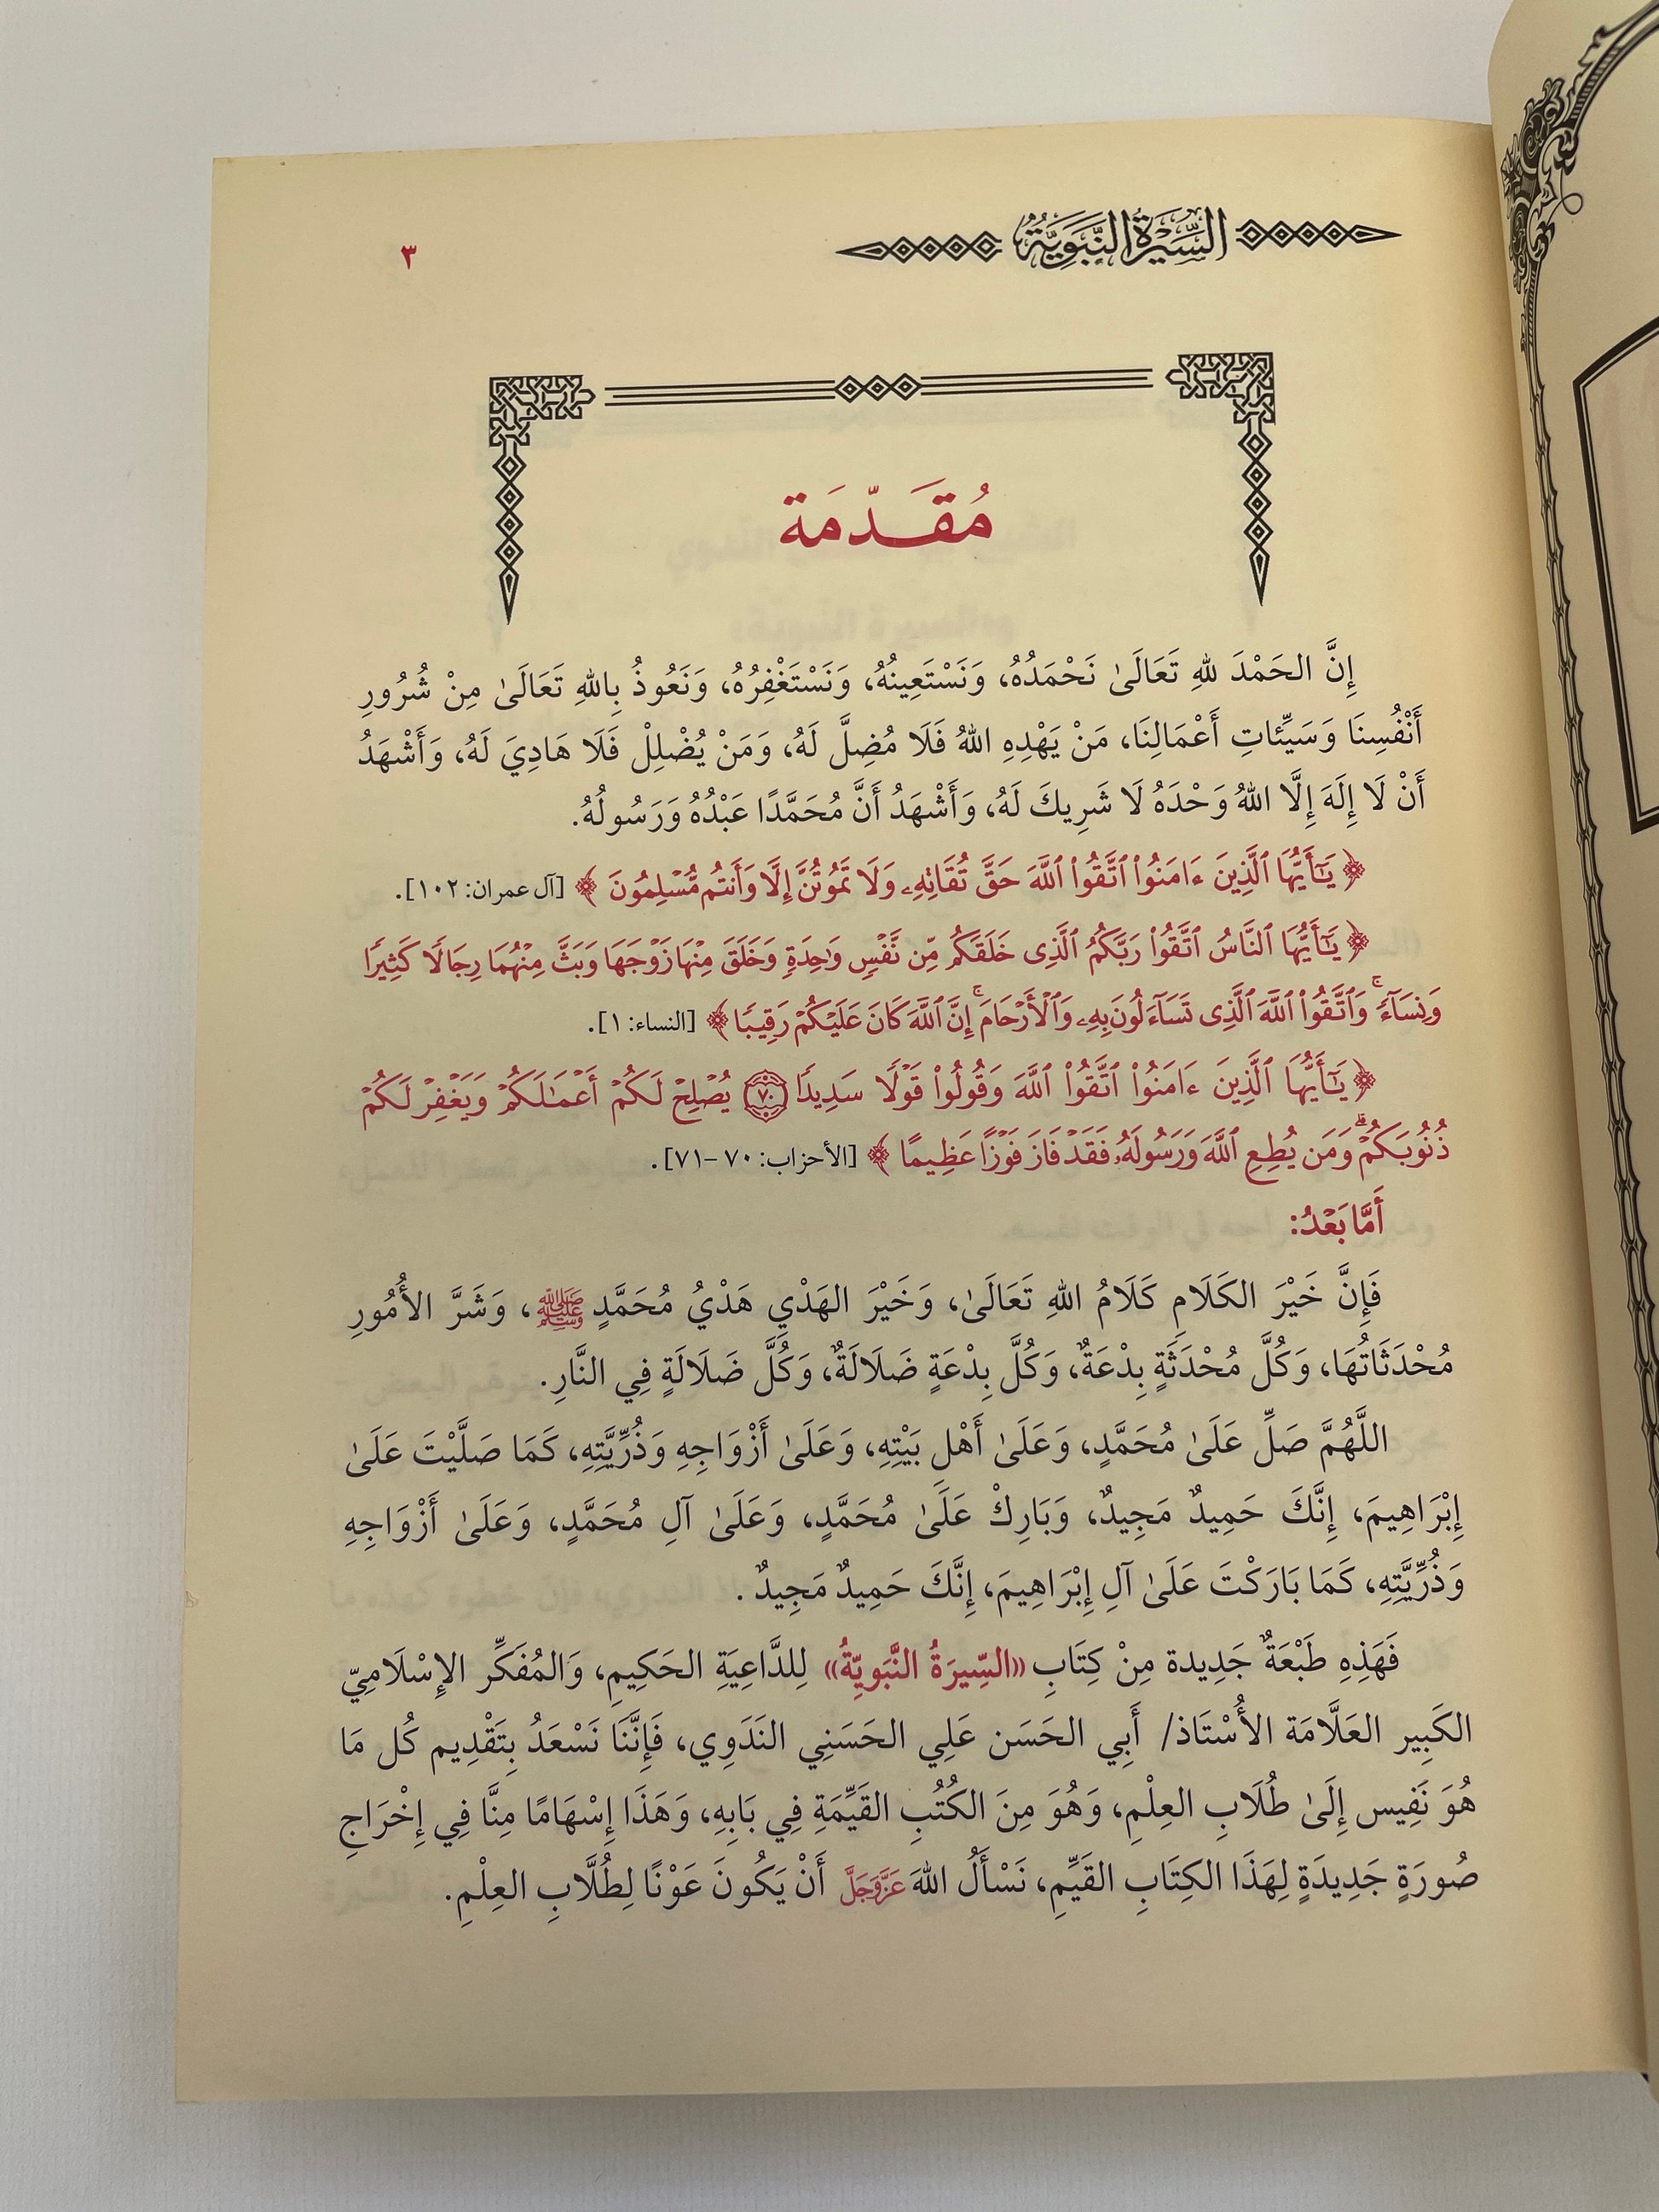 السِّيْرَةُ النَّبَوِيَّةُ
٣
مُقَدّمَة
إِنَّ الحَمْدَ للهِ تَعَالَىٰ نَحْمَدُهُ، وَنَسْتَعِينُهُ، وَنَسْتَغْفِرُهُ، وَنَعُوذُ بِاللهِ تَعَالَىٰ مِنْ شُرُورِ
أَنْفُسِنَا وَسَيِّئَاتِ أَعْمَالِنَا، مَنْ يَهْدِهِ اللهُ فَلَا مُضِلَّ لَهُ، وَمَنْ يُضْلِلْ فَلَا هَادِيَ لَهُ، وَأَشْهَدُ
أَنْ لَا إِلَهَ إِلَّا اللهُ وَحْدَهُ لَا شَرِيكَ لَهُ، وَأَشْهَدُ أَنَّ مُحَمَّدًا عَبْدُهُ وَرَسُولُهُ.
﴿يَٰٓأَيُّهَا ٱلَّذِينَ ءَامَنُوا۟ ٱتَّقُوا۟ ٱللَّهَ حَقَّ تُقَاتِهِۦ وَلَا تَمُوتُنَّ إِلَّا وَأَنتُم مُّسْلِمُونَ﴾ [آل عمران: ١٠٢].
﴿يَٰٓأَيُّهَا ٱلنَّاسُ ٱتَّقُوا۟ رَبَّكُمُ ٱلَّذِى خَلَقَكُم مِّن نَّفْسٍ وَٰحِدَةٍ وَخَلَقَ مِنْهَا زَوْجَهَا وَبَثَّ مِنْهُمَا رِجَالًا كَثِيرًا
وَنِسَآءً ۚ وَٱتَّقُوا۟ ٱللَّهَ ٱلَّذِى تَسَآءَلُونَ بِهِۦ وَٱلْأَرْحَامَ ۚ إِنَّ ٱللَّهَ كَانَ عَلَيْكُمْ رَقِيبًا﴾ [النساء: ١].
﴿يَٰٓأَيُّهَا ٱلَّذِينَ ءَامَنُوا۟ ٱتَّقُوا۟ ٱللَّهَ وَقُولُوا۟ قَوْلًا سَدِيدًا ٧٠ يُصْلِحْ لَكُمْ أَعْمَٰلَكُمْ وَيَغْفِرْ لَكُمْ
ذُنُوبَكُمْ ۗ وَمَن يُطِعِ ٱللَّهَ وَرَسُولَهُۥ فَقَدْ فَازَ فَوْزًا عَظِيمًا﴾ [الأحزاب: ٧٠ –٧١].
أَمَّا بَعْدُ:
فَإِنَّ خَيْرَ الكَلَامِ كَلَامُ اللهِ تَعَالَىٰ، وَخَيْرَ الهَدْيِ هَدْيُ مُحَمَّدٍ ﷺ، وَشَرَّ الأُمُورِ
مُحْدَثَاتُهَا، وَكُلَّ مُحْدَثَةٍ بِدْعَةٌ، وَكُلَّ بِدْعَةٍ ضَلَالَةٌ، وَكُلَّ ضَلَالَةٍ فِي النَّارِ.
اللَّهُمَّ صَلِّ عَلَىٰ مُحَمَّدٍ، وَعَلَىٰ أَهْلِ بَيْتِهِ، وَعَلَىٰ أَزْوَاجِهِ وَذُرِّيَّتِهِ، كَمَا صَلَّيْتَ عَلَىٰ
إِبْرَاهِيمَ، إِنَّكَ حَمِيدٌ مَجِيدٌ، وَبَارِكْ عَلَىٰ مُحَمَّدٍ، وَعَلَىٰ آلِ مُحَمَّدٍ، وَعَلَىٰ أَزْوَاجِهِ
وَذُرِّيَّتِهِ، كَمَا بَارَكْتَ عَلَىٰ آلِ إِبْرَاهِيمَ، إِنَّكَ حَمِيدٌ مَجِيدٌ .
فَهَذِهِ طَبْعَةٌ جَدِيدة مِنْ كِتَابِ «السِّيرَةُ النَّبَوِيَّةُ» لِلدَّاعِيَةِ الحَكِيمِ، وَالمُفَكِّر الإِسْلَامِيّ
الكَبِير العَلَّامَة الأُسْتَاذ/ أَبِي الحَسَن عَلِي الحَسَنِي النَدَوِي، فَإِنَّنَا نَسْعَدُ بِتَقْدِيم كُل مَا
هُوَ نَفِيس إِلَىٰ طُلَابِ العِلْمِ، وَهُوَ مِنَ الكُتُبِ القَيِّمَةِ فِي بَابِهِ، وَهَذَا إِسْهَامًا مِنَّا فِي إِخْرَاجِ
صُورَةٍ جَدِيدَةٍ لِهَذَا الكِتَابِ القَيِّمِ، نَسْأَلُ اللهَ عَزَّوَجَلَّ أَنْ يَكُونَ عَوْنًا لِطُلَّابِ العِلْمِ.